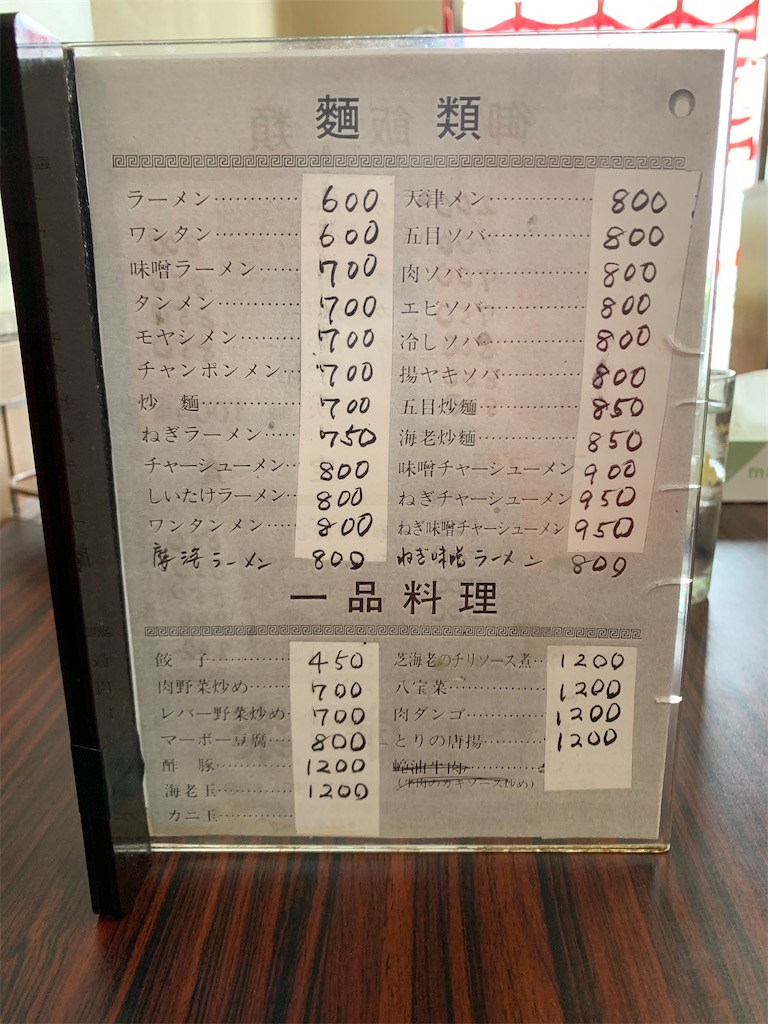 麵類
ラーメン………… 600
ワンタン………… 600
味噌ラーメン…… 700
タンメン………… 700
モヤシメン……… 700
チャンポンメン… 700
炒麵……………… 700
ねぎラーメン…… 750
チャーシューメン… 800
しいたけラーメン… 800
ワンタンメン…… 800
ラーメン 800
天津メン………… 800
五目ソバ………… 800
肉ソバ…………… 800
エビソバ………… 800
冷しソバ………… 800
揚ヤキソバ……… 800
五目炒麵………… 850
海老炒麵………… 850
味噌チャーシューメン 900
ねぎチャーシューメン 950
ねぎ味噌チャーシューメン 950
ねぎ味噌ラーメン 800
一品料理
餃子……………… 450
肉野菜炒め……… 700
レバー野菜炒め… 700
マーボー豆腐…… 800
酢豚……………… 1200
海老玉…………… 1200
カニ玉…………
芝海老のチリソース煮… 1200
八宝菜…………… 1200
肉ダンゴ………… 1200
とりの唐揚……… 1200
蠔油牛肉…………
(牛肉のカキソース炒め)
御飯類